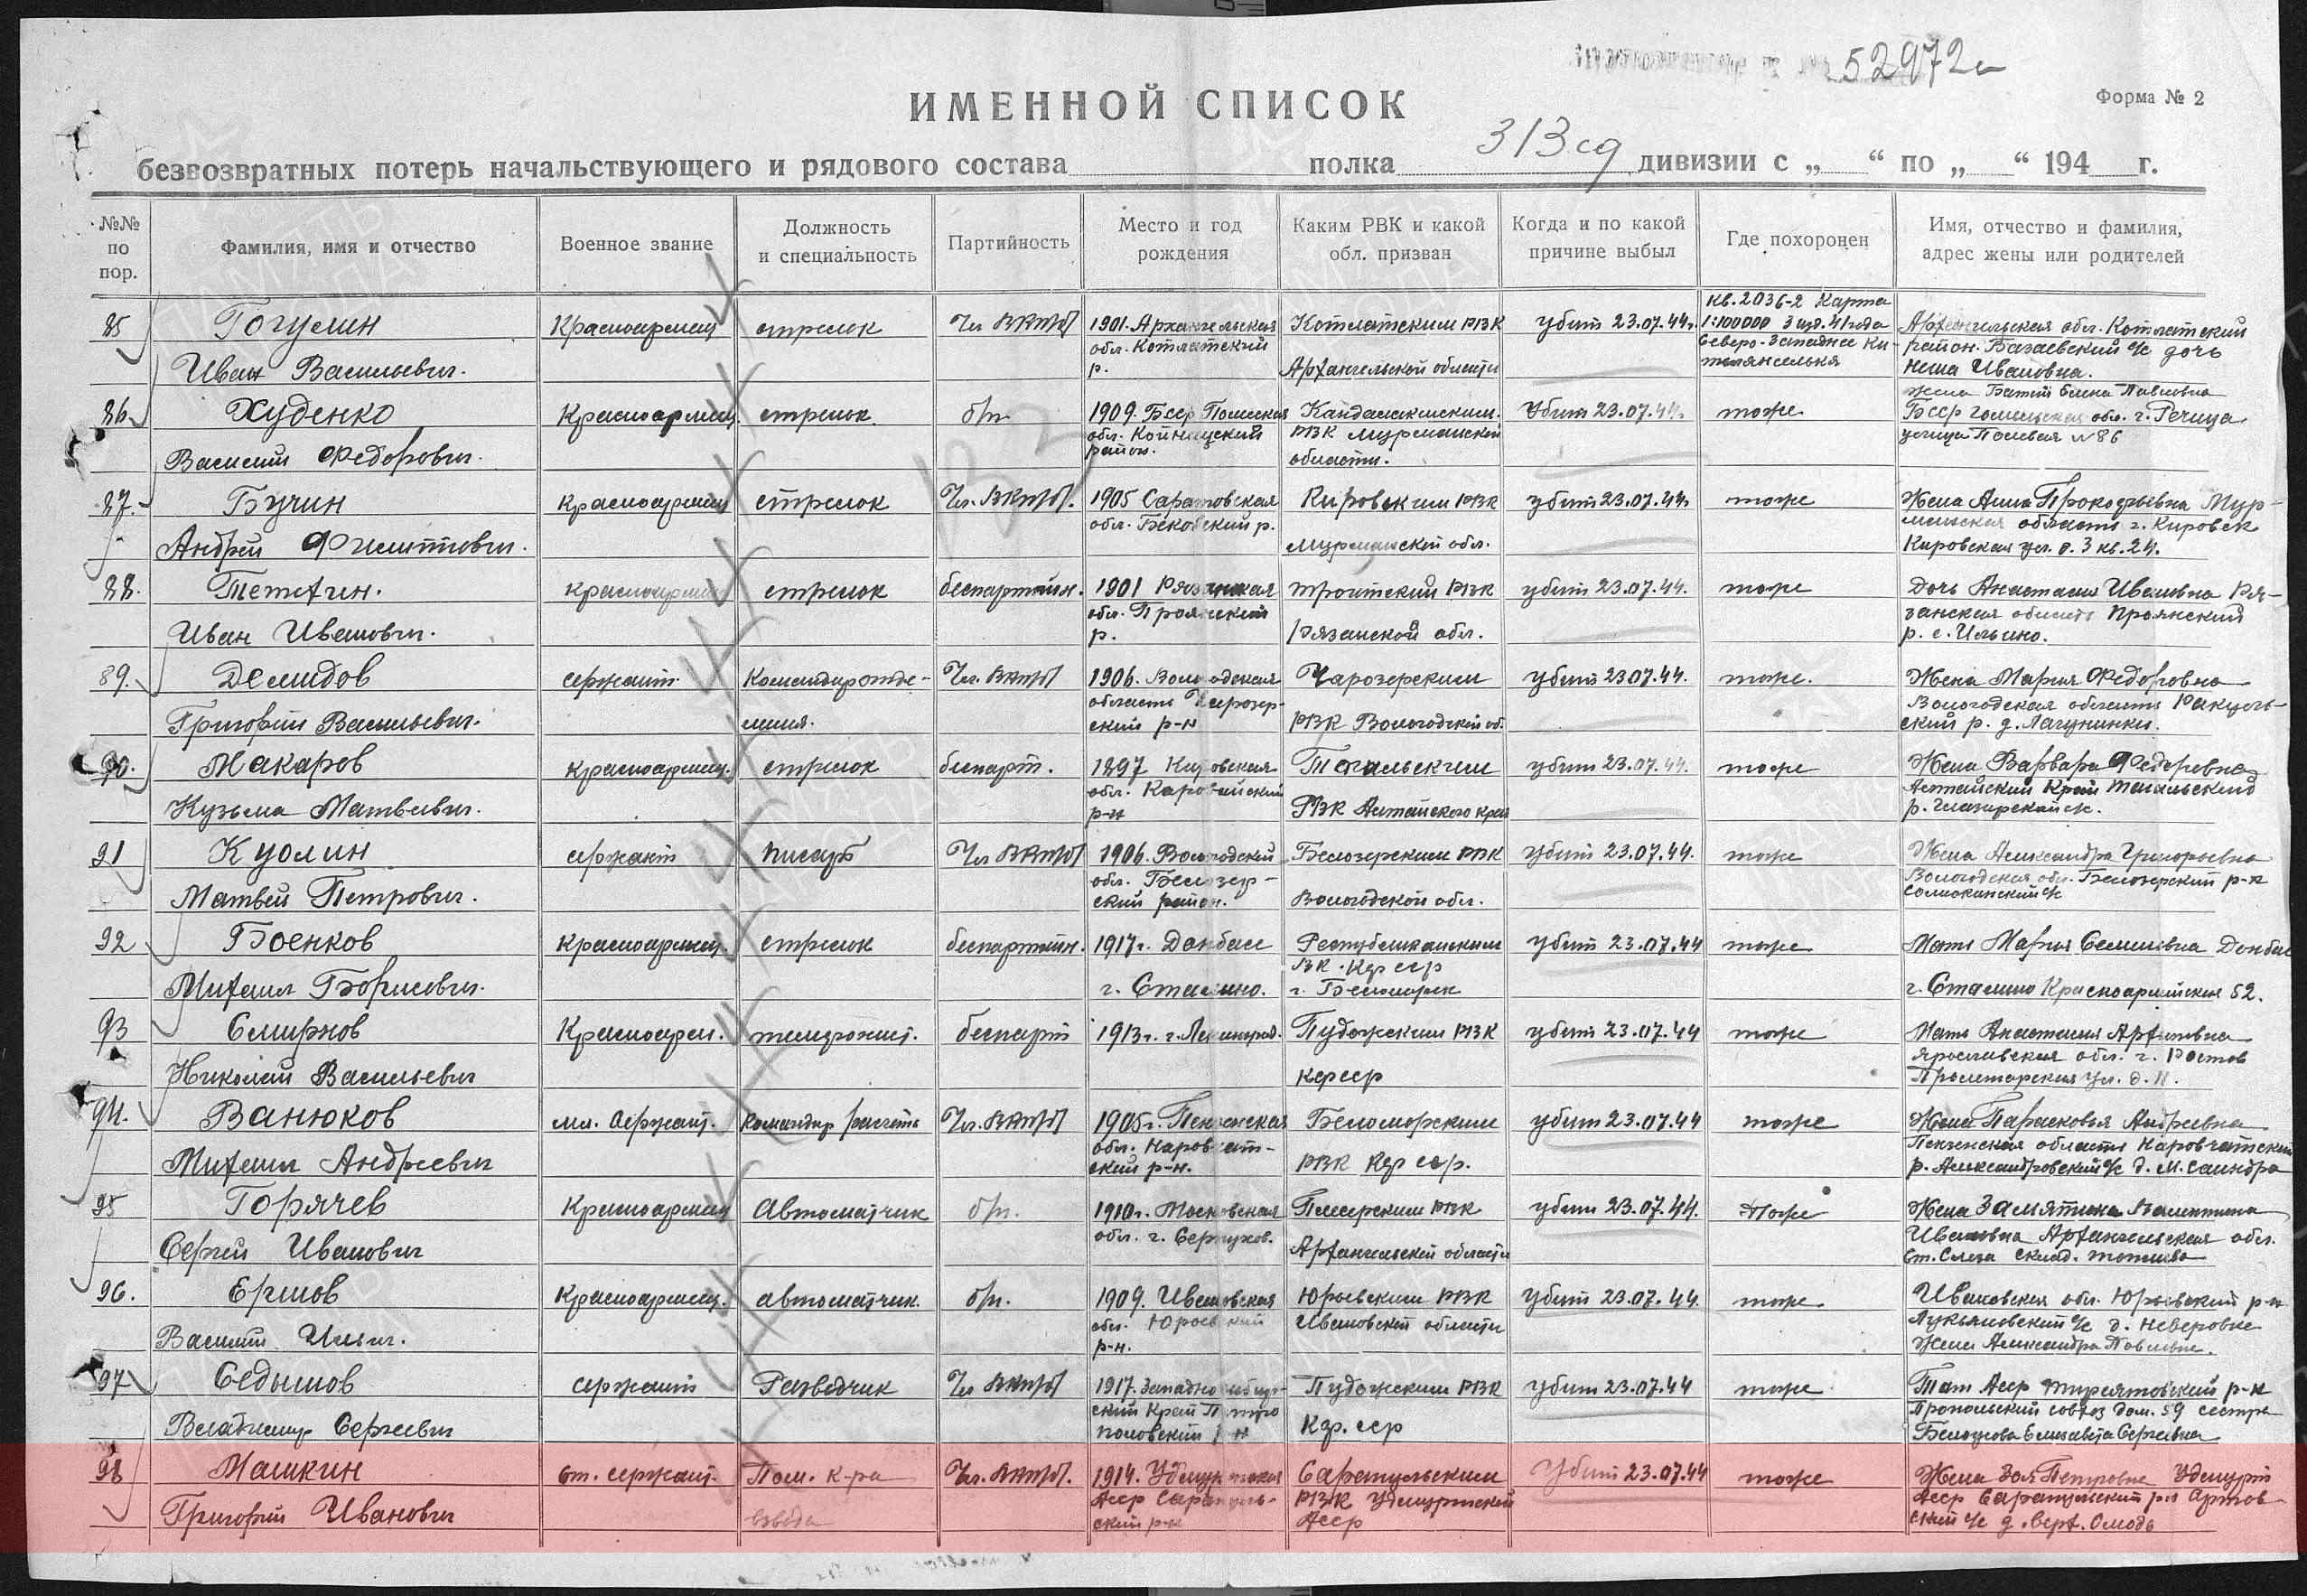 52972
Форма № 2
ИМЕННОЙ СПИСОК
безвозвратных потерь начальствующего и рядового состава полка 313 сд дивизии с „ “ по „ “ 194 г.
№№ по пор.
Фамилия, имя и отчество
Военное звание
Должность и специальность
Партийность
Место и год рождения
Каким РВК и какой обл. призван
Когда и по какой причине выбыл
Где похоронен
Имя, отчество и фамилия, адрес жены или родителей
85 Красноармеец стрелок Чл ВКП(б) 1901. Архангельская обл. Котласский р. Котласским РВК Архангельской области убит 23.07.44г. кв. 2036-2 Карта 1:100000 Северо-Западнее Архангельская обл. Котласский район. дочь Ивановна.
Иван Васильевич.
86 Худенко Красноармеец стрелок б/п 1909. Бсср обл. район. Кандалакшским РВК Мурманской области. Убит 23.07.44г. тоже Жена Павловна Бсср обл. г. Речица улица Полевая №86
Василий Федорович.
87. Бучин Красноармеец стрелок Чл. ВКП(б). 1905 Саратовская обл. Бековский р. Кировским РВК Мурманской обл. убит 23.07.44г. тоже Жена Анна Прокофьевна Мурманская область г. Кировск Кировская ул. д. 3 кв. 24.
Андрей Филиппович.
88. Красноармеец стрелок беспартийн. 1901 Рязанская обл. р. РВК Рязанской обл. убит 23.07.44. тоже Дочь Анастасия Ивановна Рязанская область р. с. Ильино.
Иван Иванович.
89. Демидов сержант Командир отделения. Чл. ВКП(б) 1906. Вологодская область Чарозерский р-н Чарозерским РВК Вологодской об. убит 23.07.44. тоже. Жена Мария Федоровна Вологодская область р. д. Лагунинки.
Григорий Васильевич.
90. Макаров Красноармеец. стрелок беспарт. 1897 Кировская обл. р-н Тогульским РВК Алтайского края убит 23.07.44. тоже Жена Варвара Федоровна Алтайский край Тогульский р.
Кузьма Матвеевич.
91 сержант писарь Чл ВКП(б) 1906. Вологодский обл. Белозерский район. Белозерским РВК Вологодской обл. убит 23.07.44. тоже Жена Александра Григорьевна Вологодская обл. Белозерский р-н
Матвей Петрович.
92 Боенков Красноармеец. стрелок беспартийн. 1917г. Донбасс г. Сталино. Республиканским ВК. Кфсср г. Беломорск убит 23.07.44 тоже Мать Мария Семеновна Донбас г. Сталино Красноармейская 52.
Михаил Борисович.
93 Смирнов Красноарм. беспарт 1913г. г. Ленинград. Пудожским РВК Кфсср убит 23.07.44 тоже Мать Анастасия Ярославская обл. г. Ростов Пролетарская ул. д. 11.
Николай Васильевич
94. Ванюков мл. Сержант. Командир расчета Чл. ВКП(б) 1905г. Пензенская обл. Наровчатский р-н. Беломорским РВК Кфсср. убит 23.07.44 тоже Жена Парасковья Андреевна Пензенская область Наровчатский р. Александровский с/с
Михаил Андреевич
95 Горячев Красноармеец Автоматчик б/п. 1910г. Московская обл. г. Серпухов. Плесецким РВК Архангельской области убит 23.07.44. тоже Жена Замятина Валентина Ивановна Архангельская обл. склад. топлива
Сергей Иванович
96. Ершов Красноармеец. автоматчик. б/п. 1909. Ивановская обл. Юрьевский р-н. Юрьевским РВК Ивановской области убит 23.07.44. тоже Ивановская обл. Юрьевский р-н Лукьяновский с/с д. Неверовке Жена Александра Павловна.
Василий Ильич.
97 Седышов сержант Разведчик Чл ВКП(б) 1917. Западно сибирский Край р-н Пудожским РВК Кфсср убит 23.07.44 тоже Тат Асср р-н совхоз дом. 59 сестра Елизавета Сергеевна
Владимир Сергеевич
98 Машкин ст. сержант. Пом. к-ра взвода Чл. ВКП(б). 1914. Удмуртская Асср Сарапульский р-н Сарапульским РВК Удмуртской Асср Убит 23.07.44 тоже Жена Зоя Петровна Удмурт Асср Сарапульский р-н с/с д. Верх.
Григорий Иванович